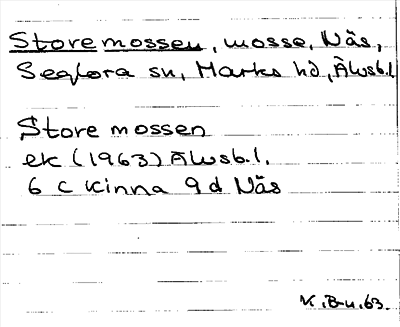 Store mossen, mosse, Näs,
Seglora sn, Marks hd, Älvsb.l.
Store mossen
ek (1963) Älvsb.l.
6 c Kinna 9 d Näs
K.B-u.63.